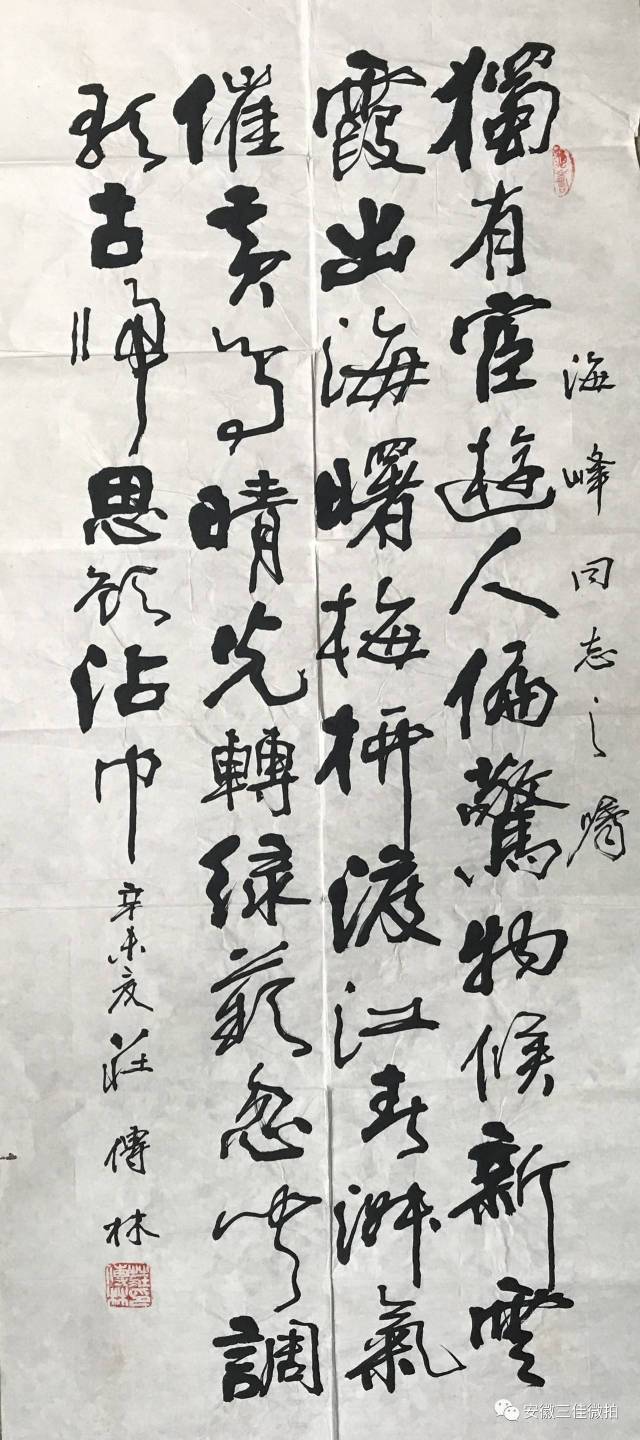 海峰同志之嘱
獨有宦遊人偏驚物候新雲
霞出海曙梅柳渡江春淑氣
催黄鳥晴光轉緑蘋忽聞調
歌古歸思欲沾巾
辛未夏莊傳林
莊傳林印
安徽三佳微拍